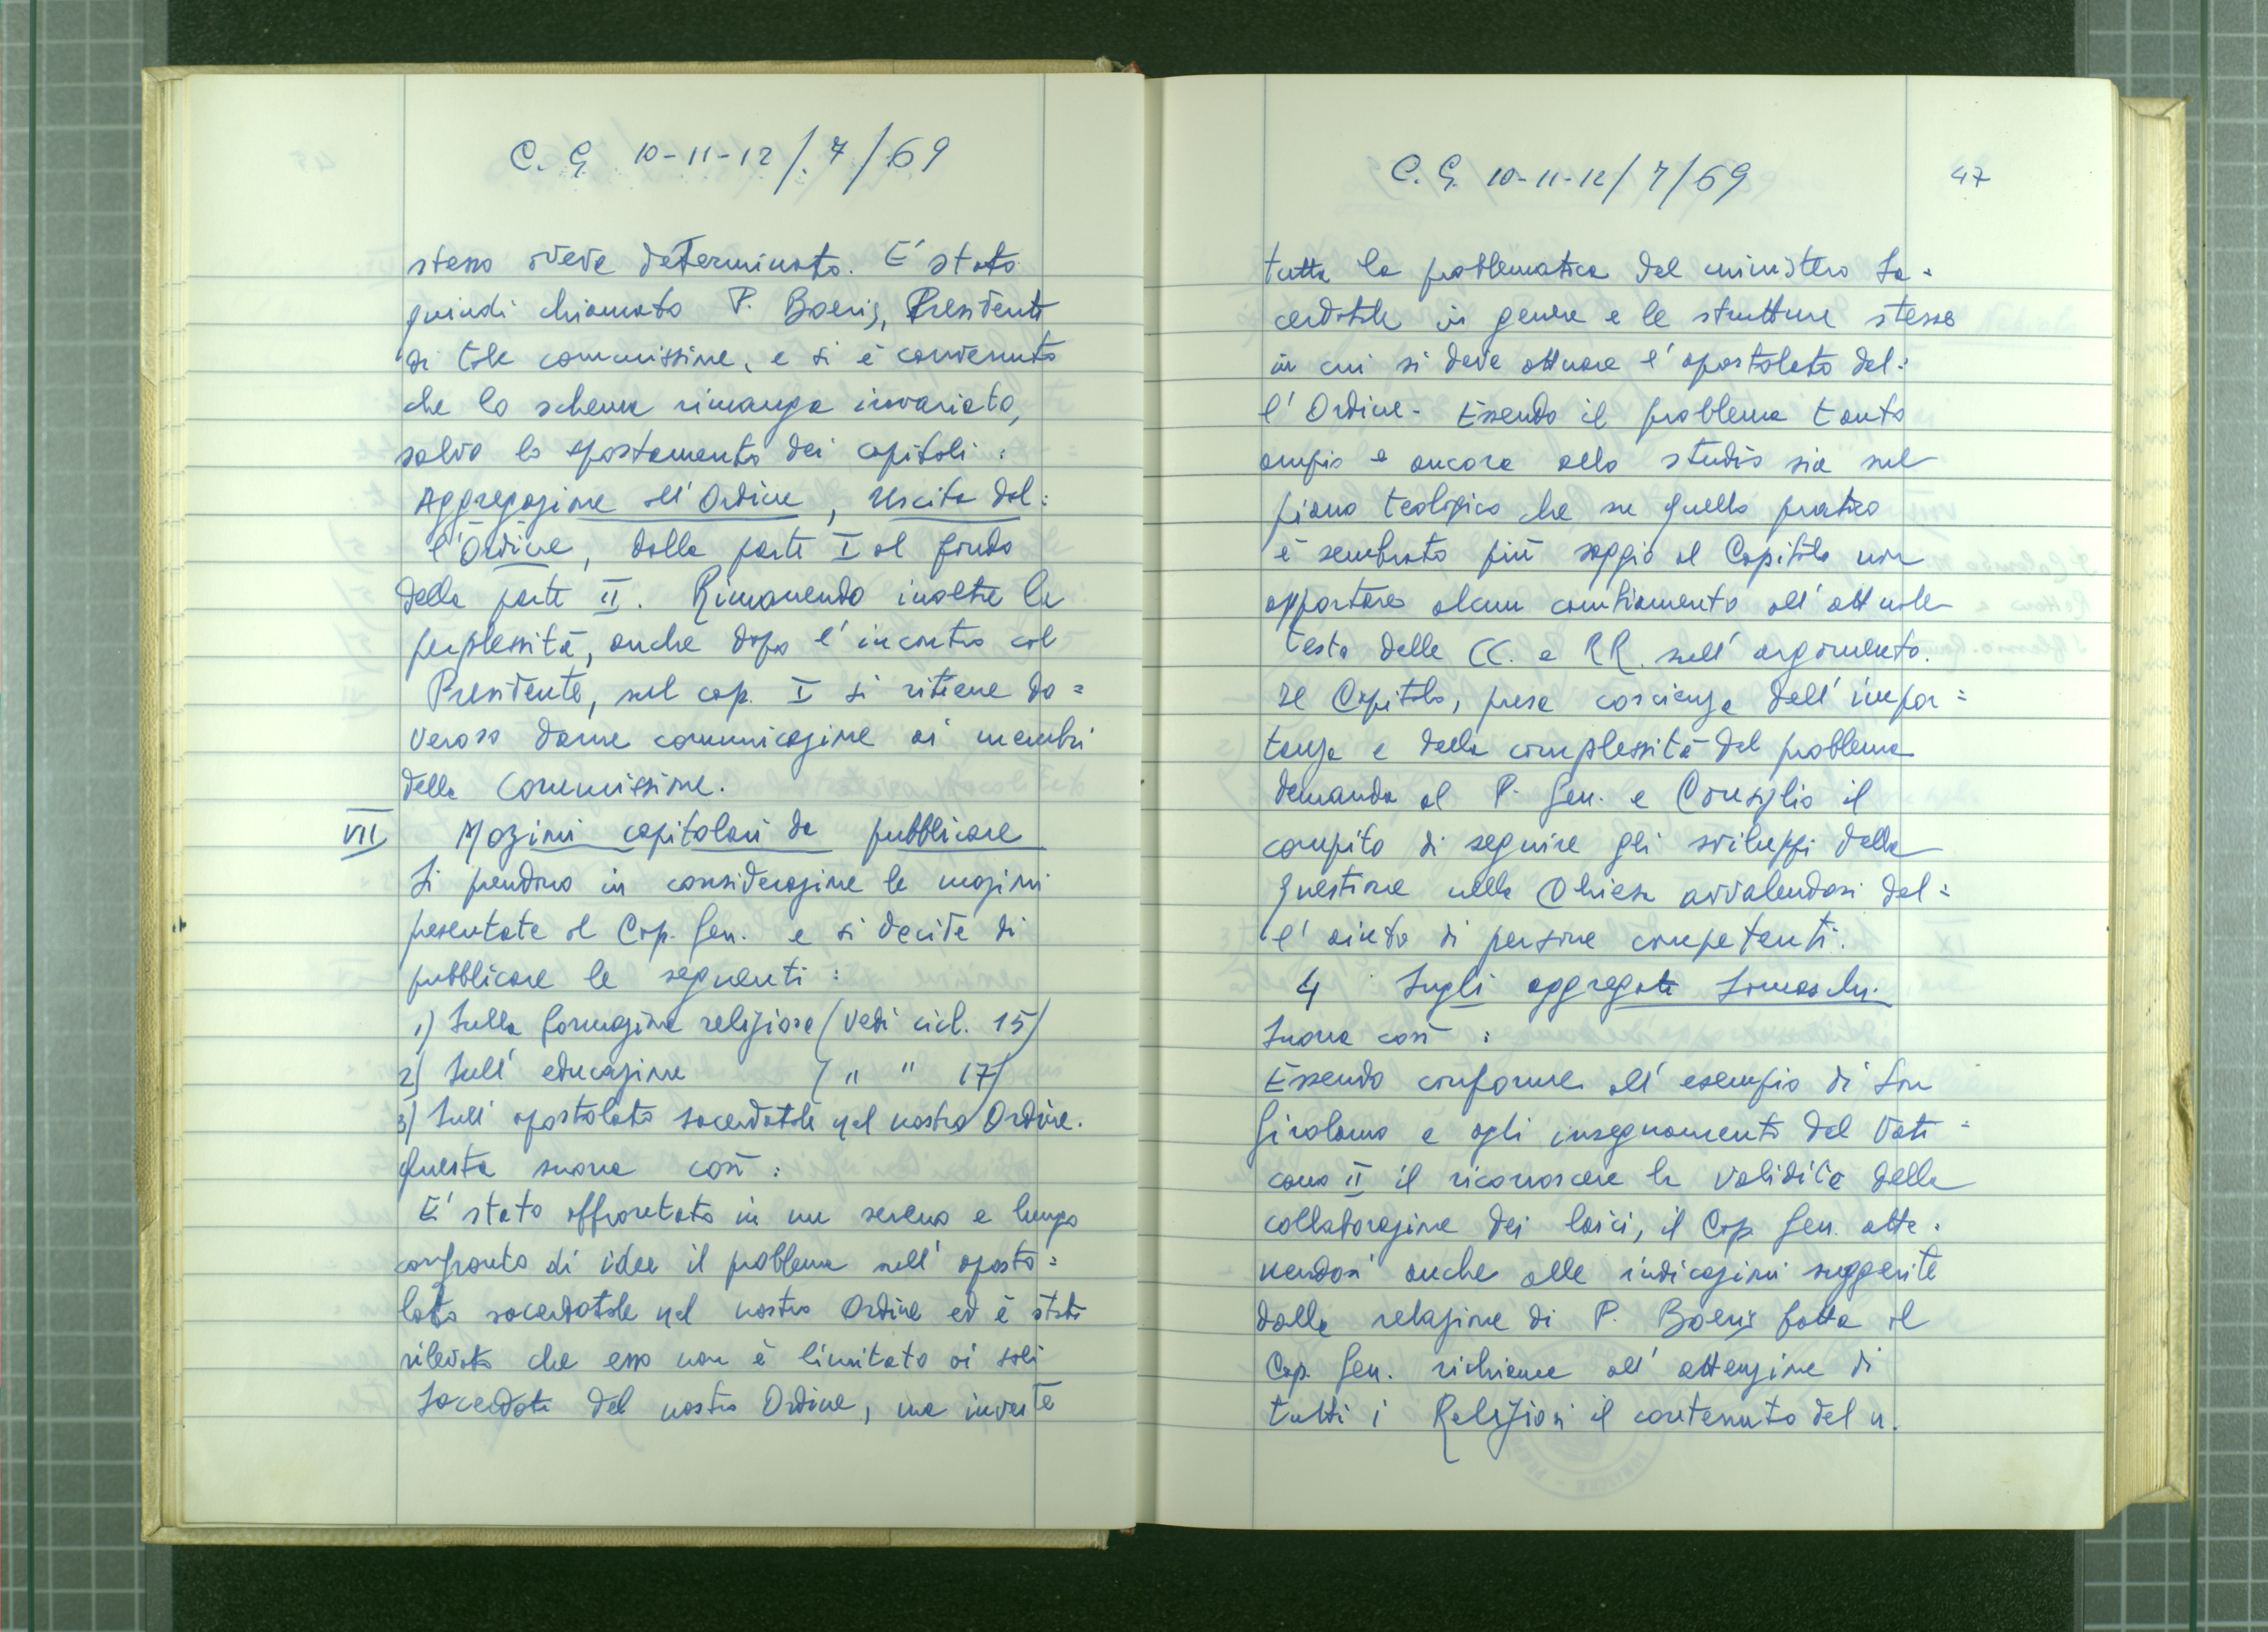 C. G. 10-11-12/.7/69
stesso aveva determinato. E' stato
quindi chiamato P. Boeris, Presidente
di tale commissione, e si è convenuto
che lo schema rimanga invariato,
salvo lo spostamento dei capitoli :
Aggregazione all'Ordine, Uscita dal=
l'Ordine, dalla parte I al fondo
della parte II. Rimanendo inoltre la
perplessità, anche dopo l'incontro col
Presidente, sul cap. I si ritiene do=
veroso darne comunicazione ai membri
della Commissione.
VII Mozioni capitolari da pubblicare
Si prendono in considerazione le mozioni
presentate al Cap. Gen. e si decide di
pubblicare le seguenti :
1) Sulla formazione religiosa (vedi cicl. 15)
2) Sull' educazione ( " " 17)
3) Sull' apostolato sacerdotale nel nostro Ordine.
Questa suona così :
E' stato affrontato in un sereno e lungo
confronto di idee il problema sull' aposto=
lato sacerdotale nel nostro Ordine ed è stato
rilevato che esso non è limitato ai soli
Sacerdoti del nostro Ordine, ma investe
C. G. 10-11-12/7/69 47
tutta la problematica del ministero Sa=
cerdotale in genere e le strutture stesse
in cui si deve attuare l'apostolato del=
l'Ordine. Essendo il problema tanto
ampio e ancora allo studio sia sul
piano teologico che su quello pratico
è sembrato più saggio al Capitolo non
apportare alcun cambiamento all'attuale
testo delle CC. e RR. sull' argomento.
Il Capitolo, presa coscienza dell' impor=
tanza e della complessità del problema
demanda al P. Gen. e Consiglio il
compito di seguire gli sviluppi della
questione nella Chiesa avvalendosi del=
l' aiuto di persone competenti.
4 Sugli aggregati Somaschi.
Suona così :
Essendo conforme all' esempio di San
Girolamo e agli insegnamento del Vati=
cano II il riconoscere la validità della
collaborazione dei laici, il Cap. Gen. atte=
nendosi anche alle indicazioni suggerite
dalla relazione di P. Boeris fatta al
Cap. Gen. richiama all' attenzione di
tutti i Religiosi il contenuto del n.